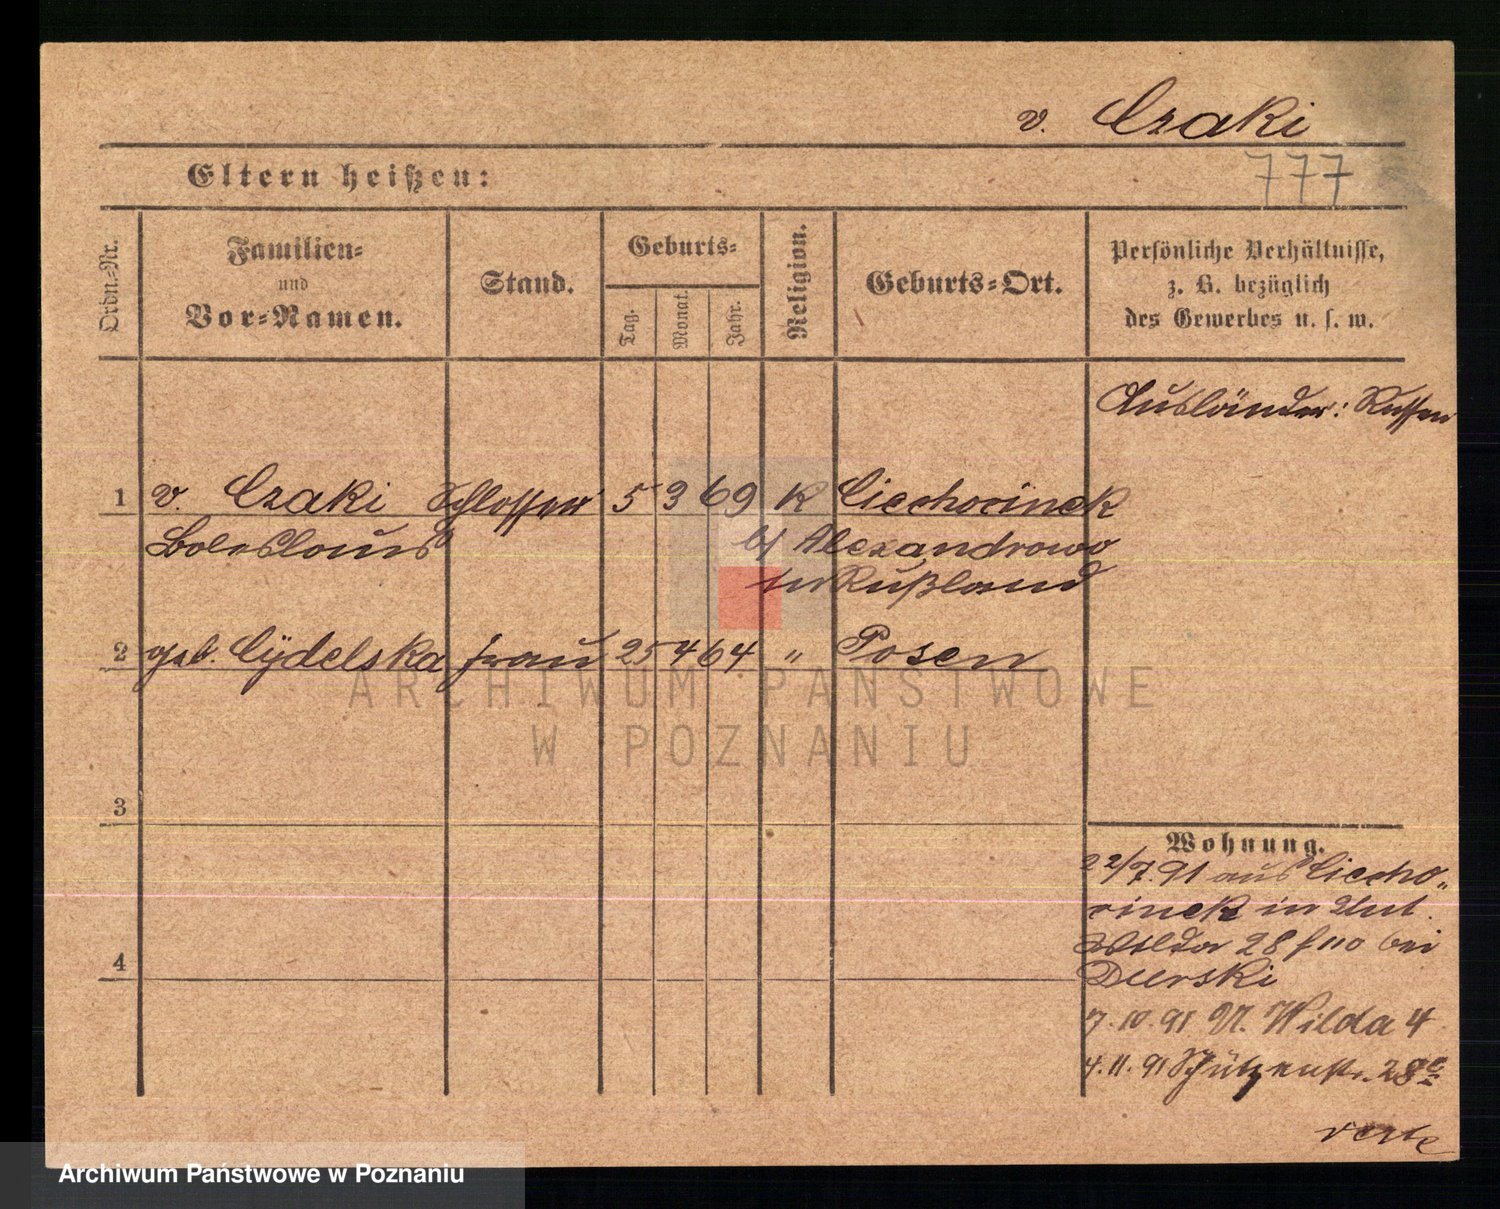 v. Czaki
777
Eltern heißen:
Ordn.-Nr.
Familien-
und
Vor-Namen.
Stand.
Geburts-
Tag.
Monat.
Jahr.
Religion.
Geburts-Ort.
Persönliche Verhältnisse,
z. B. bezüglich
des Gewerbes u. s. w.
Ausländer: Russen
1 v. Czaki Schlosser 5 3 69 K Ciechocinek
Boleslaus b/ Alexandrowo
in Rußland
2 geb. Cÿdelska Frau 25 4 64 " Posen
3
4
Wohnung.
22/7.91 aus Ciecho-
cinek in Unt.
Wilda 28 bei
7.10.91 U. Wilda 4
4.11.91 Schützenstr. 28
verte
ARCHIWUM PAŃSTWOWE
W POZNANIU
Archiwum Państwowe w Poznaniu